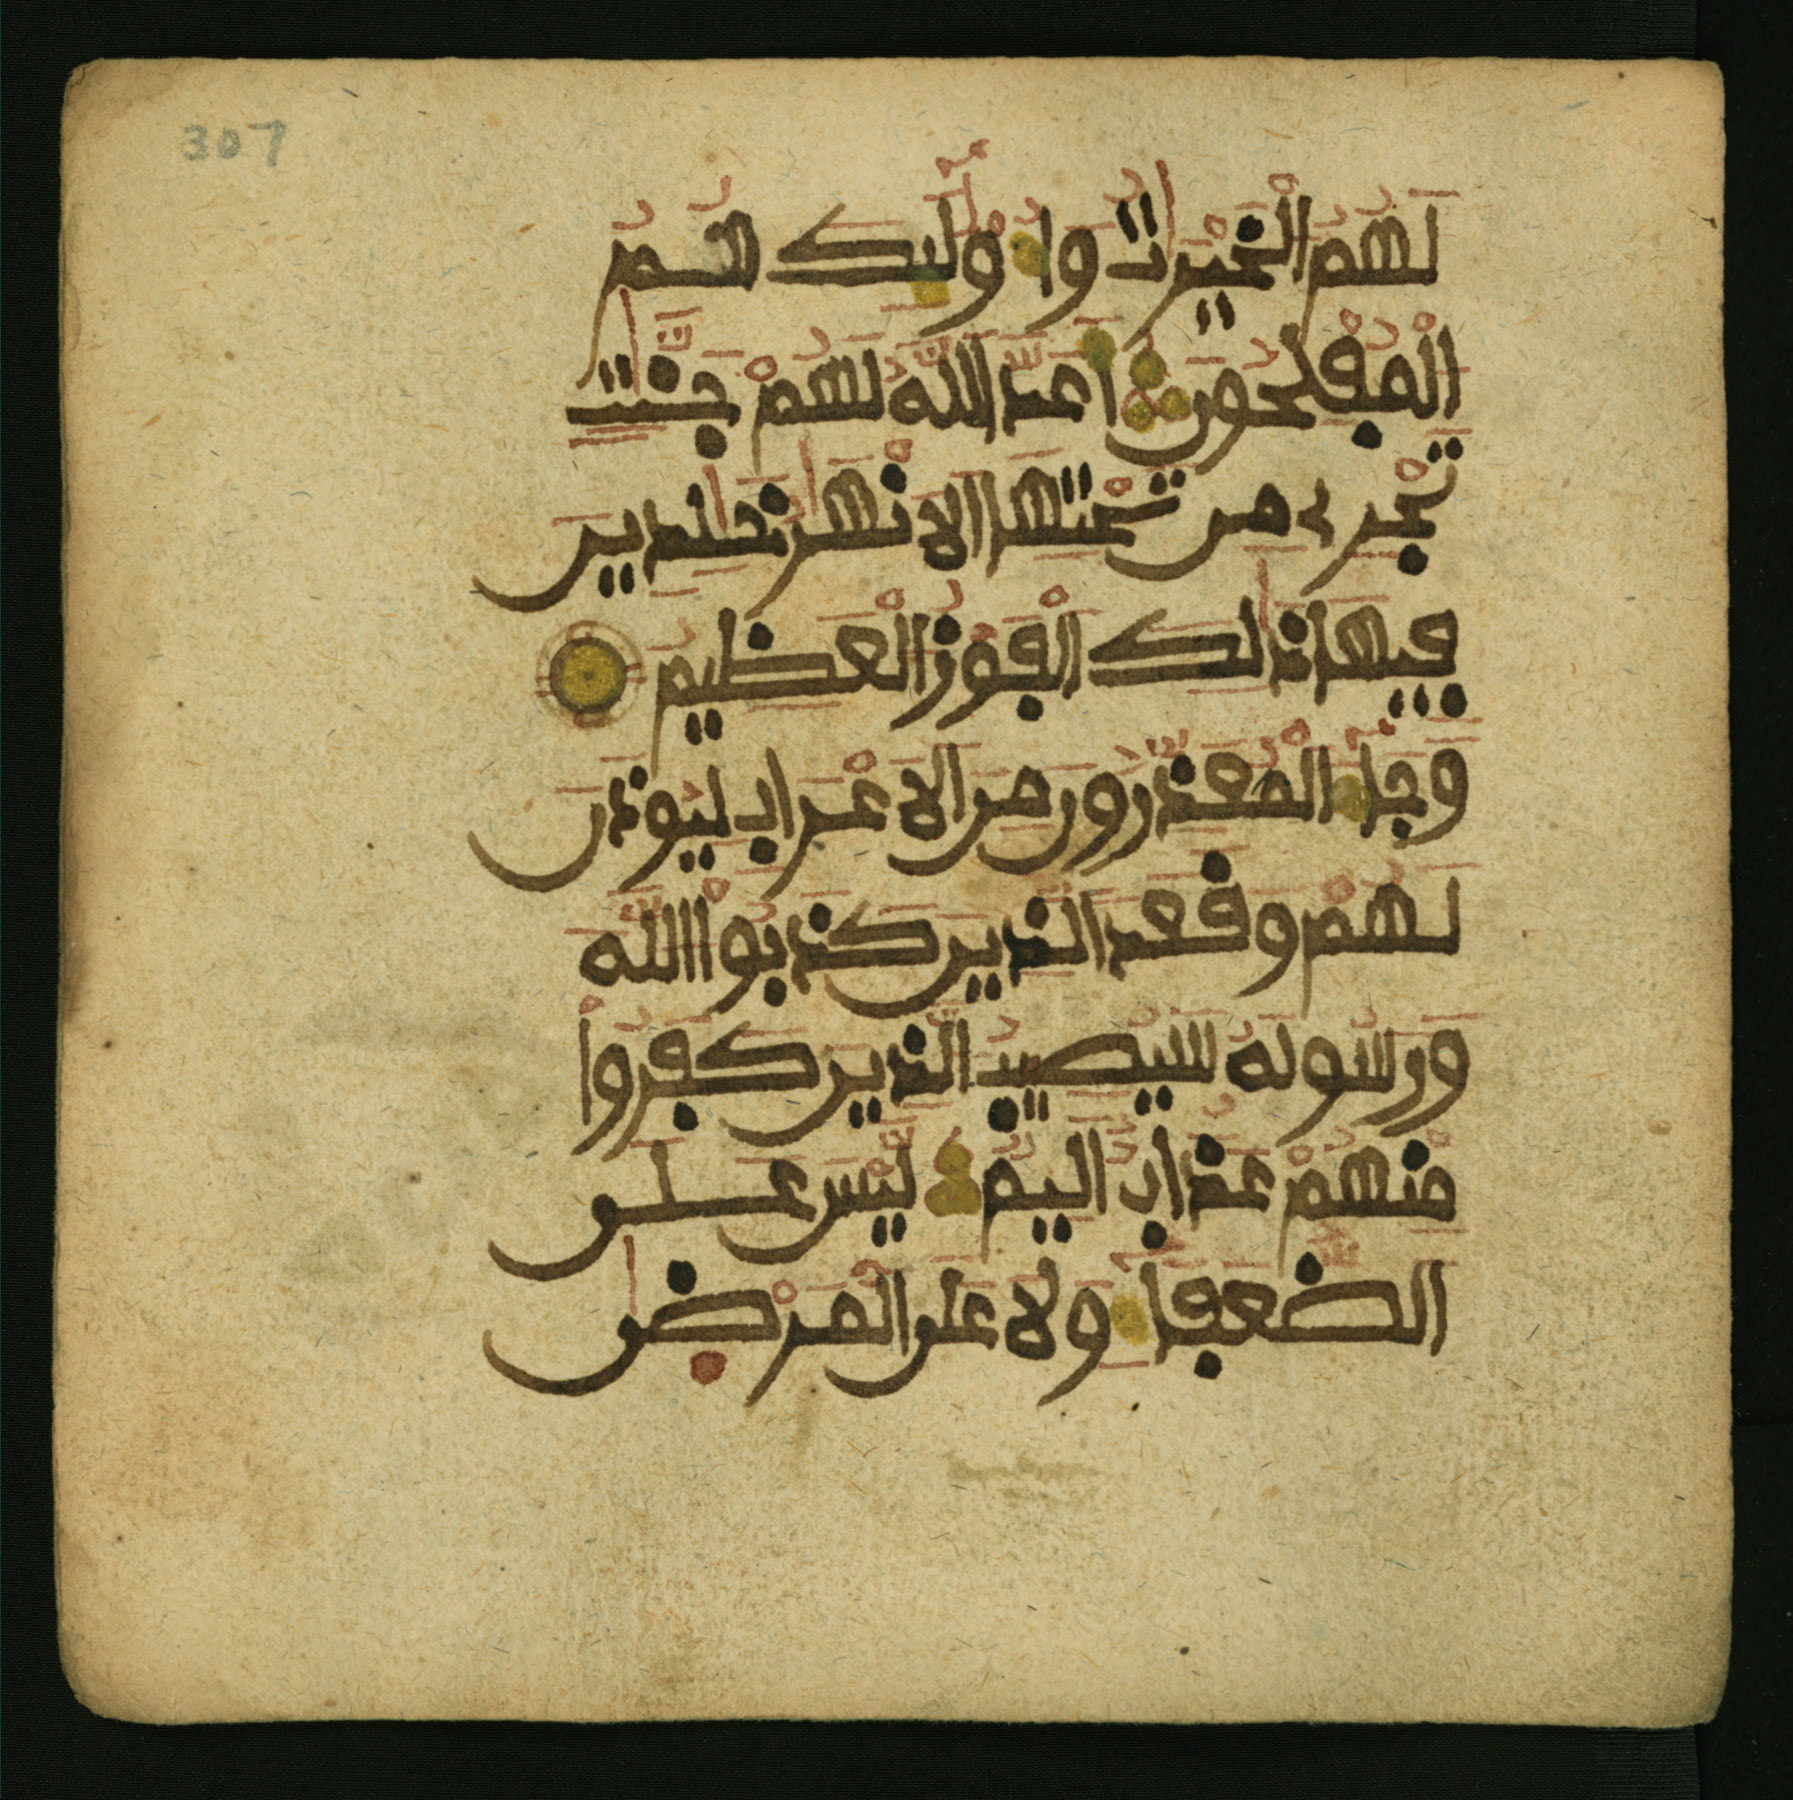 307
لَهُمُ الْخَيْرَٰتُ وَأُوْلَٰٓئِكَ هُمُ
الْمُفْلِحُونَ أَعَدَّ اللَّهُ لَهُمْ جَنَّٰتٍ
تَجْرِے مِن تَحْتِهَا الَانْهَٰرُ خَٰلِدِينَ
فِيهَا ذَٰلِكَ الْفَوْزُ الْعَظِيمُ
وَجَآءَ الْمُعَذِّرُونَ مِنَ الَاعْرَابِ لِيُوذَنَ
لَهُمْ وَقَعَدَ الَّذِينَ كَذَبُواْ اللَّهَ
وَرَسُولَهُ سَيُصِيبُ الَّذِينَ كَفَرُواْ
مِنْهُمْ عَذَابٌ اَلِيمٌ لَّيْسَ عَلَى
الضُّعَفَآءِ وَلَا عَلَى الْمَرْضَىٰ